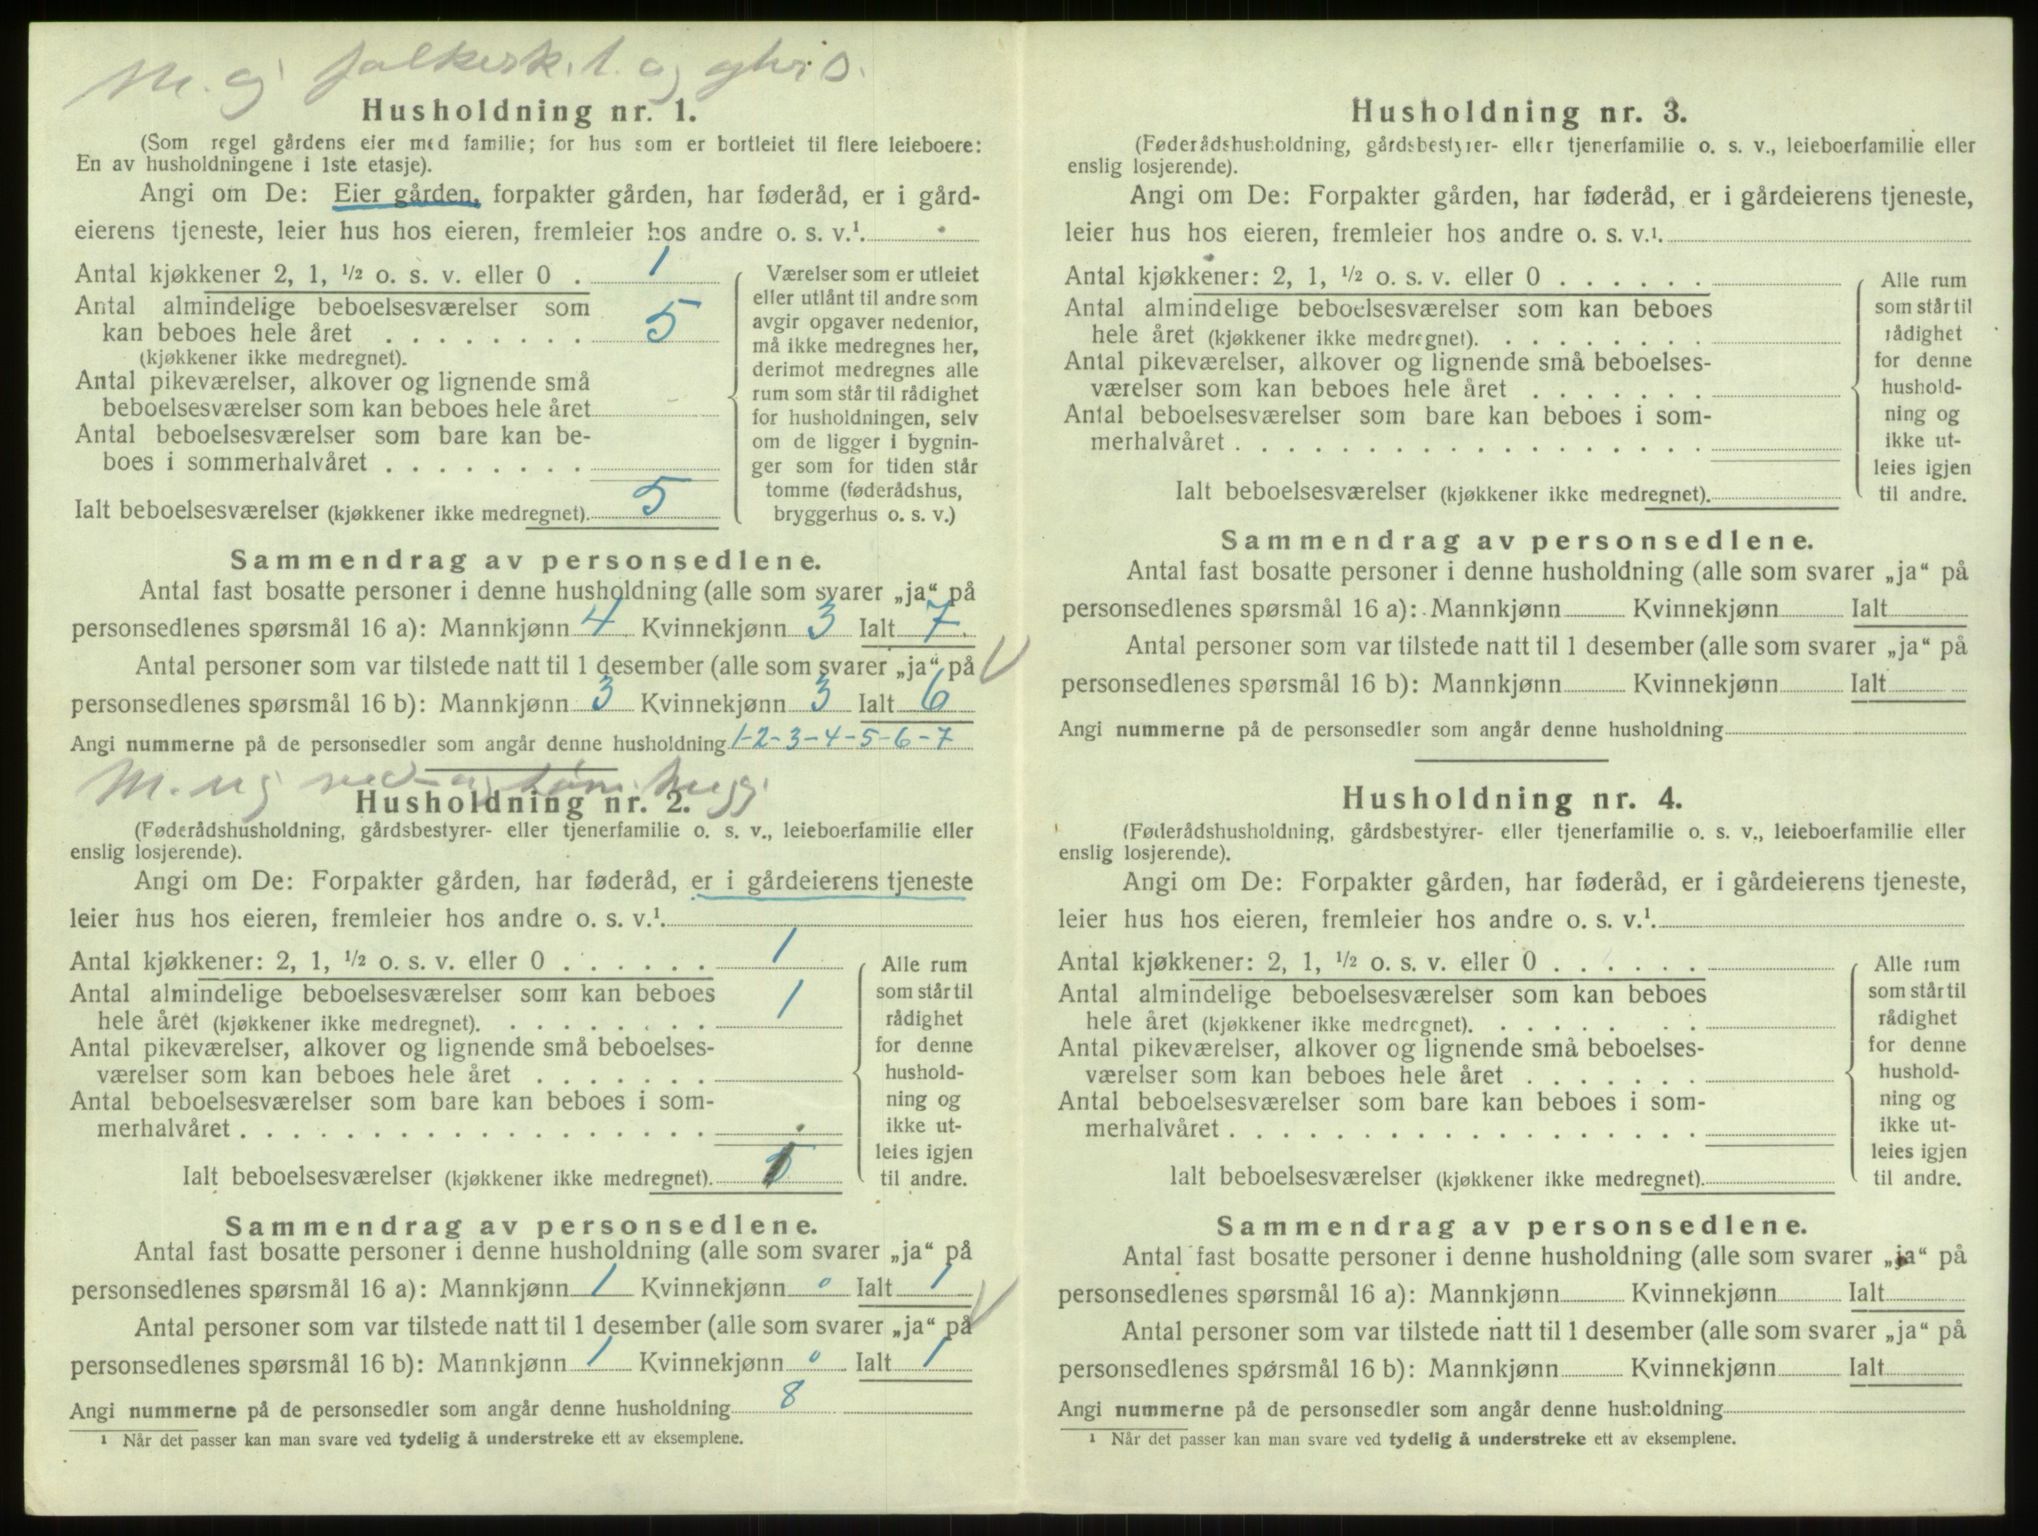 M. g folkesk. l. og
Husholdning nr. 1.
(Som regel gårdens eier med familie; for hus som er bortleiet til flere leieboere:
En av husholdningene i 1ste etasje).
Angi om De: Eier gården, forpakter gården, har føderåd, er i gård-
eierens tjeneste, leier hus hos eieren, fremleier hos andre o. s. v.¹.
Antal kjøkkener 2, 1, ½ o. s. v. eller 0 . 1
Antal almindelige beboelsesværelser som
kan beboes hele året . . . . . . . . 5
(kjøkkener ikke medregnet).
Antal pikeværelser, alkover og lignende små
beboelsesværelser som kan beboes hele året
Antal beboelsesværelser som bare kan be-
boes i sommerhalvåret . . . . . . . .
Ialt beboelsesværelser (kjøkkener ikke medregnet). 5
Værelser som er utleiet
eller utlånt til andre som
avgir opgaver nedenfor,
må ikke medregnes her,
derimot medregnes alle
rum som står til rådighet
for husholdningen, selv
om de ligger i bygnin-
ger som for tiden står
tomme (føderådshus,
bryggerhus o. s. v.)
Sammendrag av personsedlene.
Antal fast bosatte personer i denne husholdning (alle som svarer „ja“ på
personsedlenes spørsmål 16 a): Mannkjønn 4 Kvinnekjønn 3 Ialt 7
Antal personer som var tilstede natt til 1 desember (alle som svarer „ja“ på
personsedlenes spørsmål 16 b): Mannkjønn 3 Kvinnekjønn 3 Ialt 6
Angi nummerne på de personsedler som angår denne husholdning 1-2-3-4-5-6-7
M. ug ved- og tøm.hugg
Husholdning nr. 2.
(Føderådshusholdning, gårdsbestyrer- eller tjenerfamilie o. s. v., leieboerfamilie eller
enslig losjerende).
Angi om De: Forpakter gården, har føderåd, er i gårdeierens tjeneste
leier hus hos eieren, fremleier hos andre o. s. v.¹.
Antal kjøkkener: 2, 1, ½ o. s. v. eller 0 . . . . . . 1
Antal almindelige beboelsesværelser som kan beboes
hele året (kjøkkener ikke medregnet). . . . . . . . . 1
Antal pikeværelser, alkover og lignende små beboelses-
værelser som kan beboes hele året . . . . . . .
Antal beboelsesværelser som bare kan beboes i som-
merhalvåret . . . . . . . . . . . . . . . . . .
Ialt beboelsesværelser (kjøkkener ikke medregnet).
Alle rum
som står til
rådighet
for denne
hushold-
ning og
ikke ut-
leies igjen
til andre.
Sammendrag av personsedlene.
Antal fast bosatte personer i denne husholdning (alle som svarer „ja“ på
personsedlenes spørsmål 16 a): Mannkjønn 1 Kvinnekjønn 0 Ialt 1
Antal personer som var tilstede natt til 1 desember (alle som svarer „ja“ på
personsedlenes spørsmål 16 b): Mannkjønn 1 Kvinnekjønn 0 Ialt 1
Angi nummerne på de personsedler som angår denne husholdning 8
¹ Når det passer kan man svare ved tydelig å understreke ett av eksemplene.
Husholdning nr. 3.
(Føderådshusholdning, gårdsbestyrer- eller tjenerfamilie o. s. v., leieboerfamilie eller
enslig losjerende).
Angi om De: Forpakter gården, har føderåd, er i gårdeierens tjeneste,
leier hus hos eieren, fremleier hos andre o. s. v.¹.
Antal kjøkkener: 2, 1, ½ o. s. v. eller 0 . . . . . .
Antal almindelige beboelsesværelser som kan beboes
hele året (kjøkkener ikke medregnet). . . . . . . . .
Antal pikeværelser, alkover og lignende små beboelses-
værelser som kan beboes hele året . . . . . . .
Antal beboelsesværelser som bare kan beboes i som-
merhalvåret . . . . . . . . . . . . . . . . . .
Ialt beboelsesværelser (kjøkkener ikke medregnet).
Alle rum
som står til
rådighet
for denne
hushold-
ning og
ikke ut-
leies igjen
til andre.
Sammendrag av personsedlene.
Antal fast bosatte personer i denne husholdning (alle som svarer „ja“ på
personsedlenes spørsmål 16 a): Mannkjønn Kvinnekjønn Ialt
Antal personer som var tilstede natt til 1 desember (alle som svarer „ja“ på
personsedlenes spørsmål 16 b): Mannkjønn Kvinnekjønn Ialt
Angi nummerne på de personsedler som angår denne husholdning
Husholdning nr. 4.
(Føderådshusholdning, gårdsbestyrer- eller tjenerfamilie o. s. v., leieboerfamilie eller
enslig losjerende).
Angi om De: Forpakter gården, har føderåd, er i gårdeierens tjeneste,
leier hus hos eieren, fremleier hos andre o. s. v.¹.
Antal kjøkkener: 2, 1, ½ o. s. v. eller 0 . . . . . .
Antal almindelige beboelsesværelser som kan beboes
hele året (kjøkkener ikke medregnet). . . . . . . . .
Antal pikeværelser, alkover og lignende små beboelses-
værelser som kan beboes hele året . . . . . . .
Antal beboelsesværelser som bare kan beboes i som-
merhalvåret . . . . . . . . . . . . . . . . . .
Ialt beboelsesværelser (kjøkkener ikke medregnet).
Alle rum
som står til
rådighet
for denne
hushold-
ning og
ikke ut-
leies igjen
til andre.
Sammendrag av personsedlene.
Antal fast bosatte personer i denne husholdning (alle som svarer „ja“ på
personsedlenes spørsmål 16 a): Mannkjønn Kvinnekjønn Ialt
Antal personer som var tilstede natt til 1 desember (alle som svarer „ja“ på
personsedlenes spørsmål 16 b): Mannkjønn Kvinnekjønn Ialt
Angi nummerne på de personsedler som angår denne husholdning
¹ Når det passer kan man svare ved tydelig å understreke ett av eksemplene.